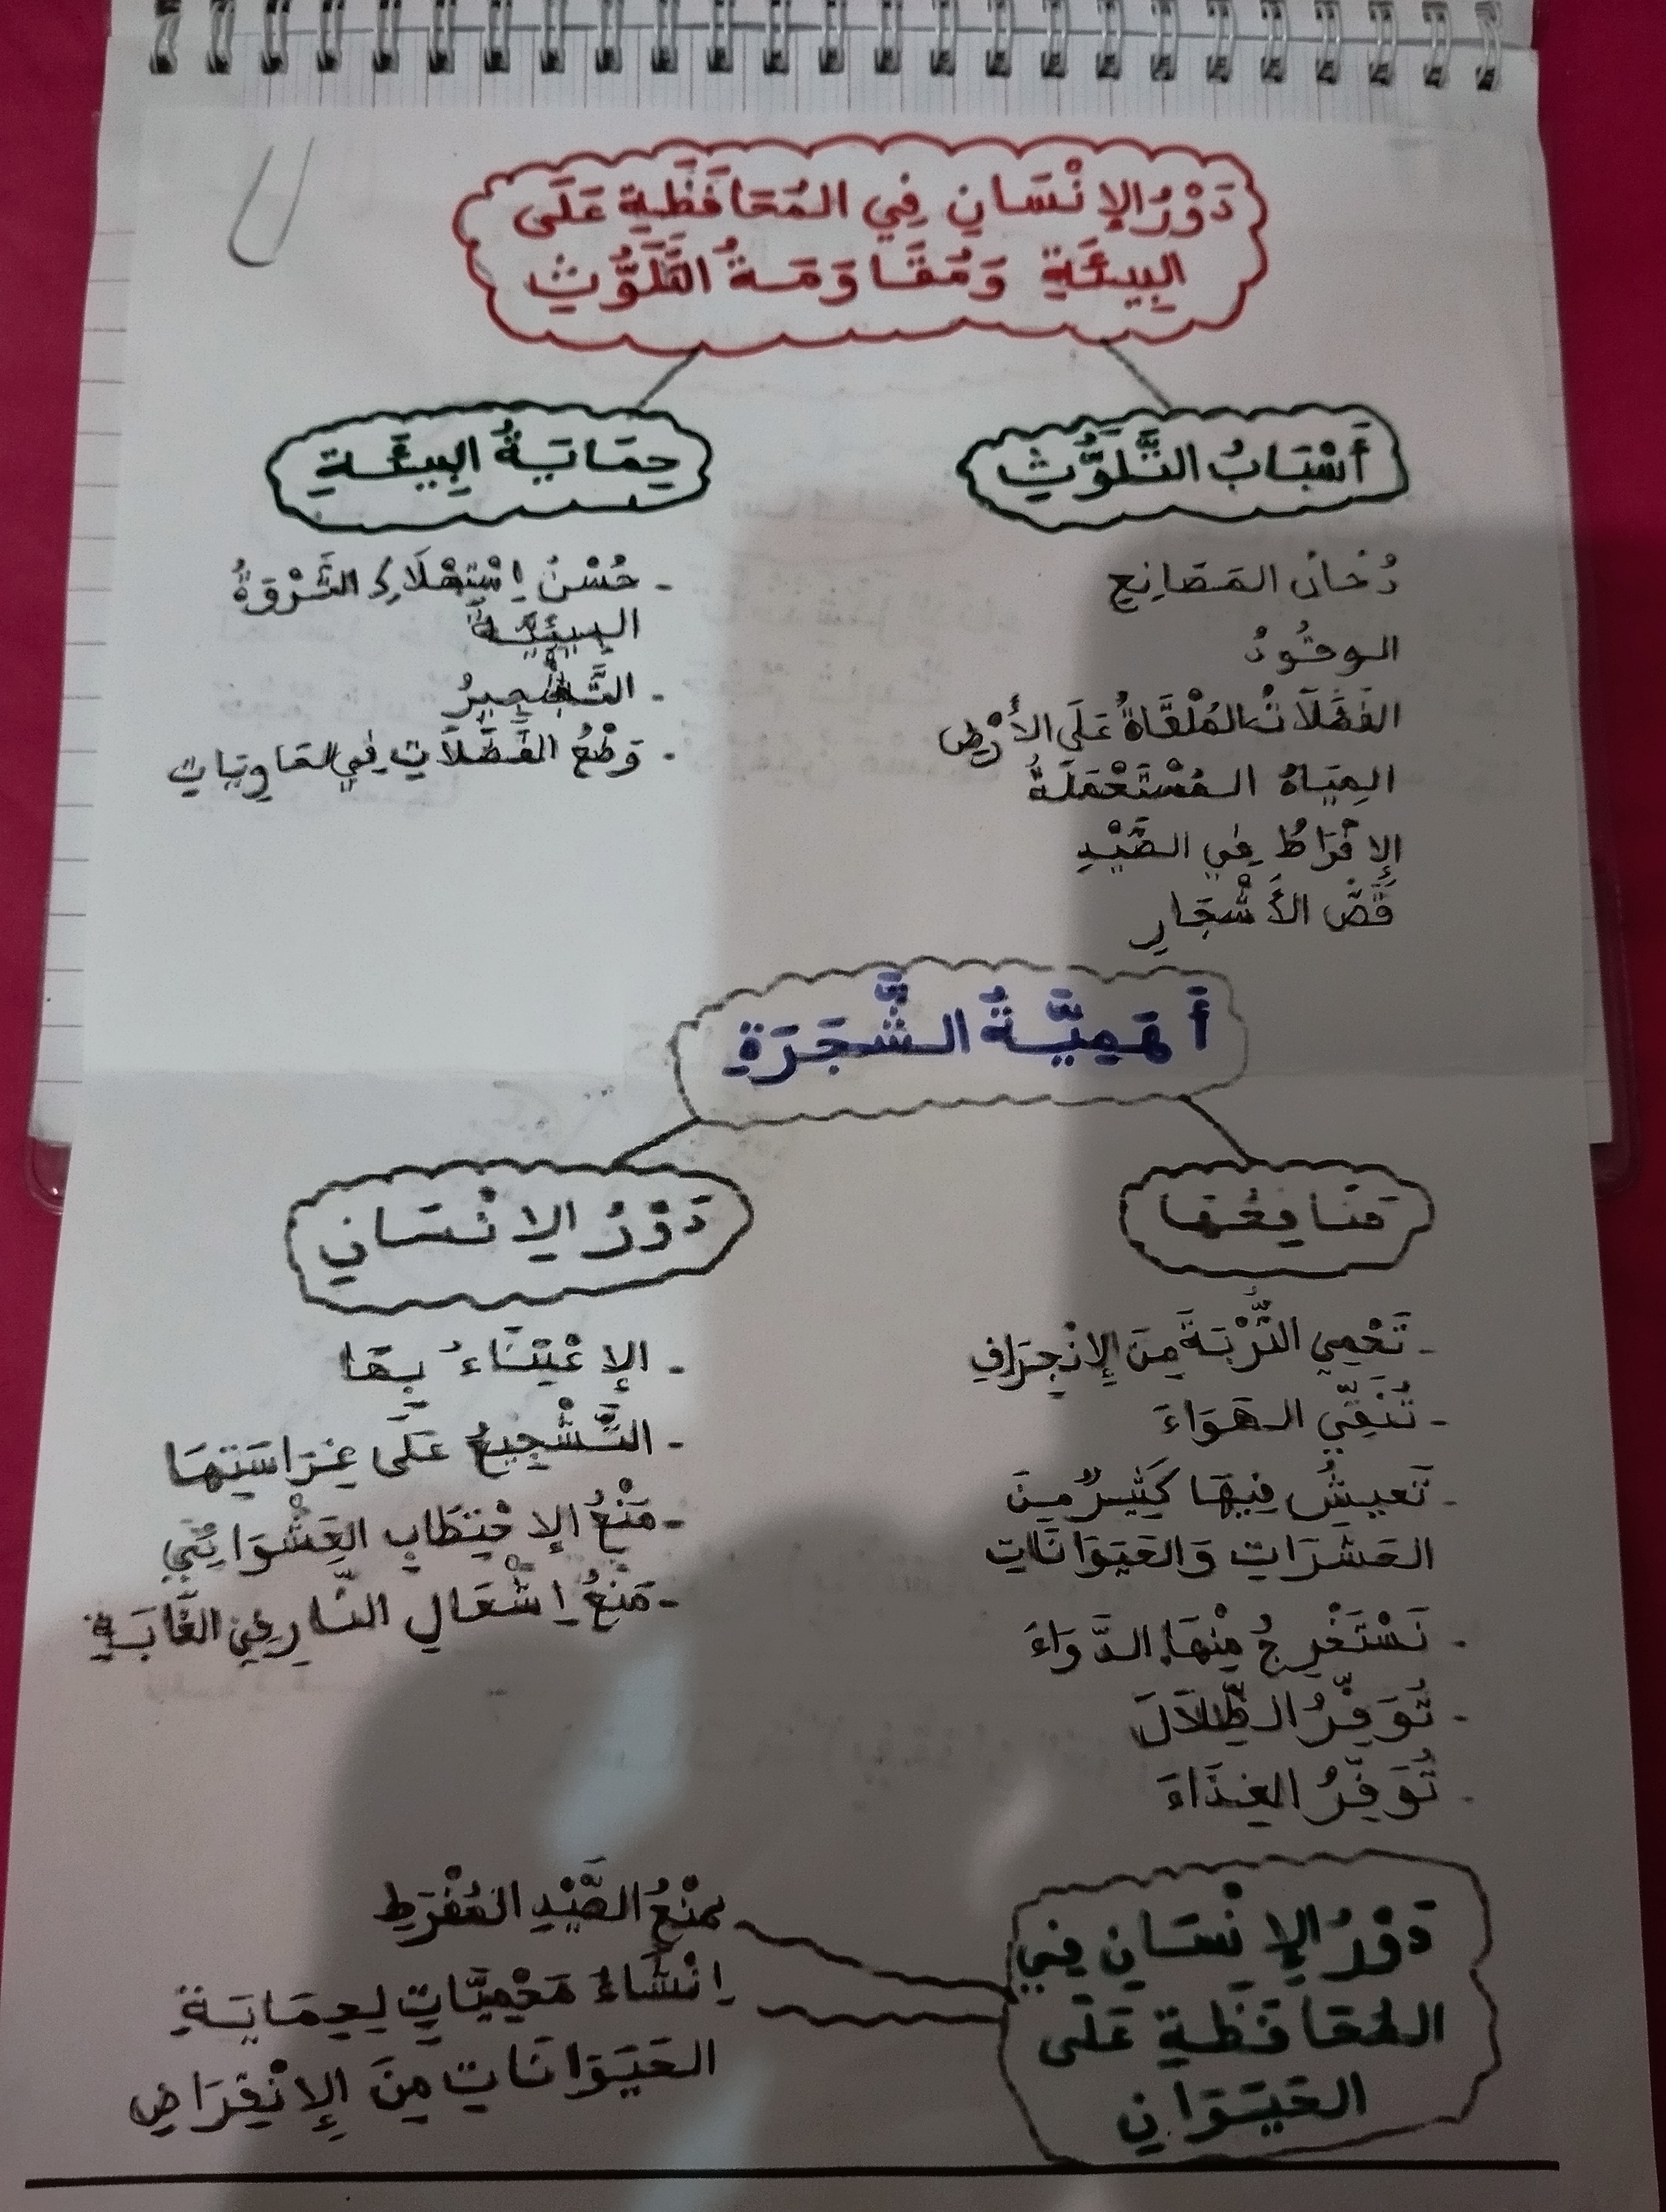 دَوْرُ الإِنْسَانِ فِي المُحَافَظَةِ عَلَى
البِيئَةِ وَمُقَاوَمَةُ التَّلَوُّثِ
أَسْبَابُ التَّلَوُّثِ
دُخَانُ المَصَانِعِ
الوقُودُ
الفَضَلَاتُ المُلْقَاةُ عَلَى الأَرْضِ
المِيَاهُ المُسْتَعْمَلَةُ
الإِفْرَاطُ فِي الصَّيْدِ
قَصُّ الأَشْجَارِ
حِمَايَةُ البِيئَةِ
- حُسْنُ اِسْتِهْلَاكِ الثَّرْوَةُ
البِيئِيَّةُ
- التَّشْجِيرُ
- وَضْعُ الفَضَلَاتِ فِي الحَاوِيَاتِ
أَهَمِيَّةُ الشَّجَرَةِ
مَنَافِعُهَا
- تَحْمِي التُّرْبَةَ مِنَ الإِنْجِرَافِ
- تُنَقِّي الهَوَاءَ
- تَعِيشُ فِيهَا كَثِيرٌ مِنَ
الحَشَرَاتِ وَالحَيَوَانَاتِ
- نَسْتَخْرِجُ مِنْهَا الدَّوَاءَ
- تُوَفِّرُ الظِّلَالَ
- تُوَفِّرُ الغِذَاءَ
دَوْرُ الإِنْسَانِ
- الإِعْتِنَاءُ بِهَا
- التَّشْجِيعُ عَلَى غِرَاسَتِهَا
- مَنْعُ الإِحْتِطَابِ العَشْوَائِيِّ
- مَنْعُ اِشْعَالِ النَّارِ فِي الغَابَةِ
دَوْرُ الإِنْسَانِ فِي
المُحَافَظَةِ عَلَى
الحَيَوَانِ
مَنْعُ الصَّيْدِ المُفْرَطِ
اِنْشَاءُ مَحْمِيَّاتٍ لِحِمَايَةِ
الحَيَوَانَاتِ مِنَ الإِنْقِرَاضِ